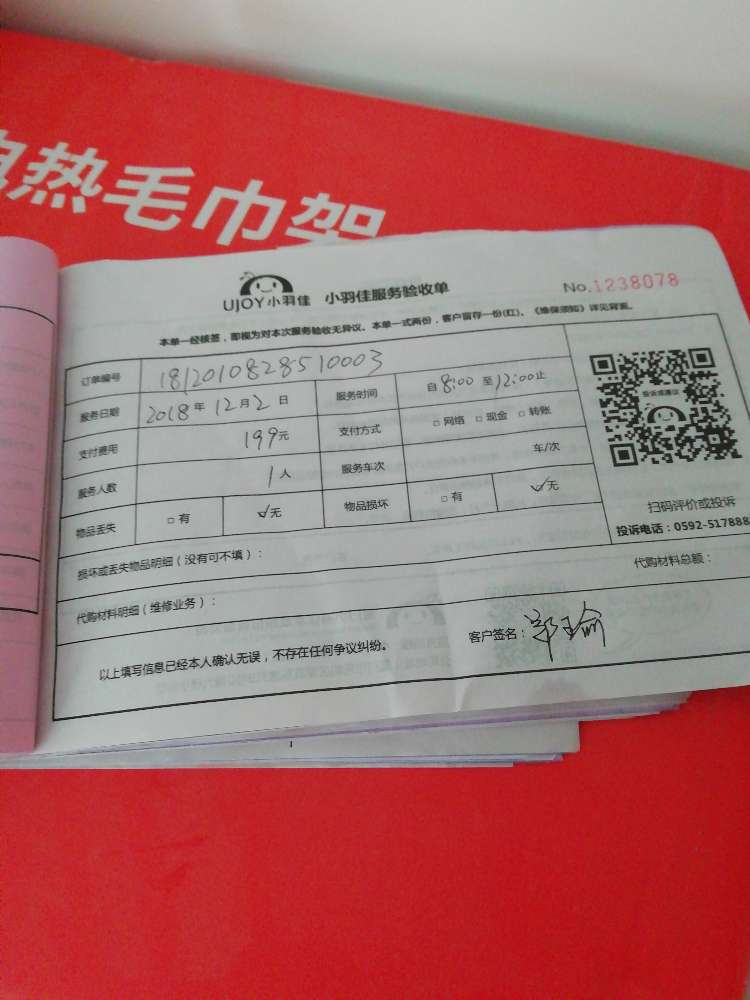 电热毛巾架
UJOY小羽佳 小羽佳服务验收单 No.1238078
本单一经核签，即视为对本次服务验收无异议。本单一式两份，客户留存一份(红)。《维保须知》详见背面。
订单编号 1812010828510003
服务日期 2018年12月2日 服务时间 自8:00至12:00止
支付费用 199元 支付方式 □网络 □现金 □转账
服务人数 1人 服务车次 车/次
物品丢失 □有 ☑无 物品损坏 □有 ☑无
投诉或建议
扫码评价或投诉
投诉电话：0592-517888
损坏或丢失物品明细（没有可不填）：
代购材料明细（维修业务）： 代购材料总额：
以上填写信息已经本人确认无误，不存在任何争议纠纷。 客户签名：郭瑜